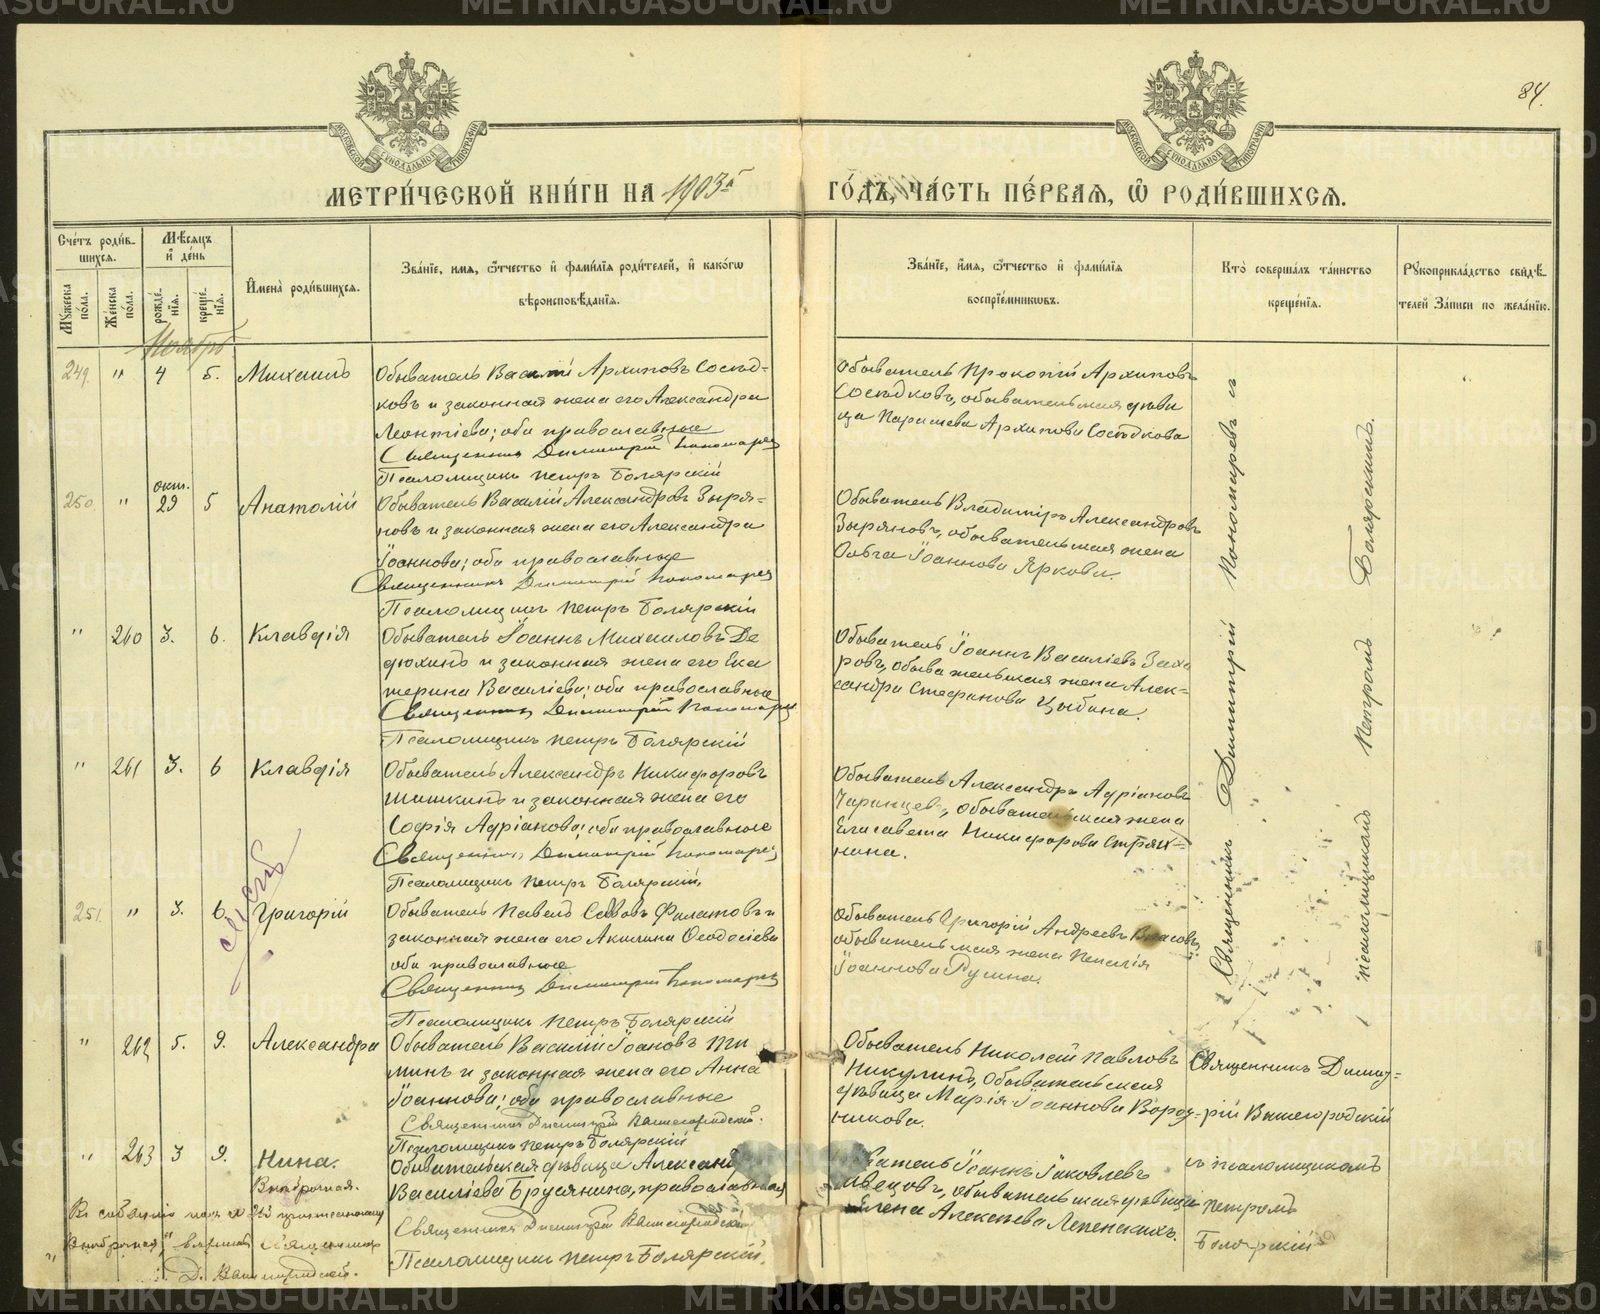 METRIKI.GASO-URAL.RU
84.
МОСКОВСКОЙ СѴНОДАЛЬНОЙ ТИПОГРАФІИ
МОСКОВСКОЙ СѴНОДАЛЬНОЙ ТИПОГРАФІИ
МЕТРИ́ЧЕСКОЙ КНИ́ГИ НА 1903й ГО́ДЪ, ЧА́СТЬ ПЕ́РВАЯ, Ѿ РОДИ́ВШИХСЯ.
Сче́тъ роди́в-
шихся.
Му́жеска по́ла.
Же́нска по́ла.
Мѣ́сяцъ и҆ де́нь
рожде́-
нїя.
креще́-
нїя.
И҆мена̀ роди́вшихся.
Зва́нїе, и҆́мя, ѻ҆́тчество и҆ фами́лїя роди́телей, и҆ како́гѡ
вѣроисповѣ́данїя.
Зва́нїе, и҆́мя, ѻ҆́тчество и҆ фами́лїя
воспрїе́мникѡвъ.
Кто̀ соверша́лъ та́инство
креще́нїя.
Рукоприкла́дство свидѣ́-
телей за́писи по жела́нїю.
Ноябрь
249. " 4 5. Михаилъ
Обыватель Василій Архиповъ Сосѣд-
ковъ и законная жена его Александра
Леонтіева; оба православные
Священникъ Димитрій Пономаревъ
Псаломщикъ Петръ Болярскій
Обыватель Прокопій Архиповъ
Сосѣдковъ, обывательская дѣви
ца Параскева Архипова Сосѣдкова
250 " окт. 29 5 Анатолій
Обыватель Василій Александровъ Зыря-
новъ и законная жена его Александра
Іоаннова; оба православные
Священникъ Димитрій Пономаревъ
Псаломщикъ Петръ Болярскій
Обыватель Владиміръ Александровъ
Зыряновъ, обывательская жена
Ольга Іоаннова Яркова.
" 260 3. 6. Клавдія
Обыватель Іоаннъ Михаиловъ Де
дюхинъ и законная жена его Ека
терина Василіева; оба православные
Священникъ Димитрій Пономаревъ
Псаломщикъ Петръ Болярскій
Обыватель Іоаннъ Василіевъ Заха
ровъ, обывательская жена Алек-
сандра Стефанова Цыбина.
" 261 3. 6 Клавдія
Обыватель Александръ Никифоровъ
Шишкинъ и законная жена его
Софія Адріанова; оба православные
Священникъ Димитрій Пономаревъ
Псаломщикъ Петръ Болярскій
Обыватель Александръ Адріановъ
обывательская жена
Елисавета Никифорова
нина.
251. " 3. 6. Григорій
Обыватель Павелъ Савовъ Филатовъ и
законная жена его Акилина Ѳеодосіева
оба православные
Священникъ Димитрій Пономаревъ
Псаломщикъ Петръ Болярскій
Обыватель Григорій Андреевъ Власовъ
обывательская жена
Іоаннова
Священникъ Димитрій Пономаревъ и
псаломщикомъ Петромъ Болярскимъ.
" 262 5. 9. Александра
Обыватель Василій Іоановъ Ти
минъ и законная жена его Анна
Іоаннова; оба православные
Священникъ Димитрій Вышегородскій.
Псаломщикъ Петръ Болярскій
Обыватель Николай Павловъ
Никулинъ, Обывательская
дѣвица Марія Іоаннова
никова.
Священникъ Димит-
рій Вышегородскій
" 263 3 9. Нина.
Внебрачная.
Обывательская дѣвица Александра
Василіева Брусянина, православная
Священникъ Димитрій Вышегородскій
Псаломщикъ Петръ Болярскій.
Обыватель Іоаннъ Іаковлевъ
обывательская дѣвица
Елена Алексѣева Лепенскихъ.
и псаломщикомъ
Петромъ
Болярскій
"Внебрачная," священникъ
Д. Вышегородскій.